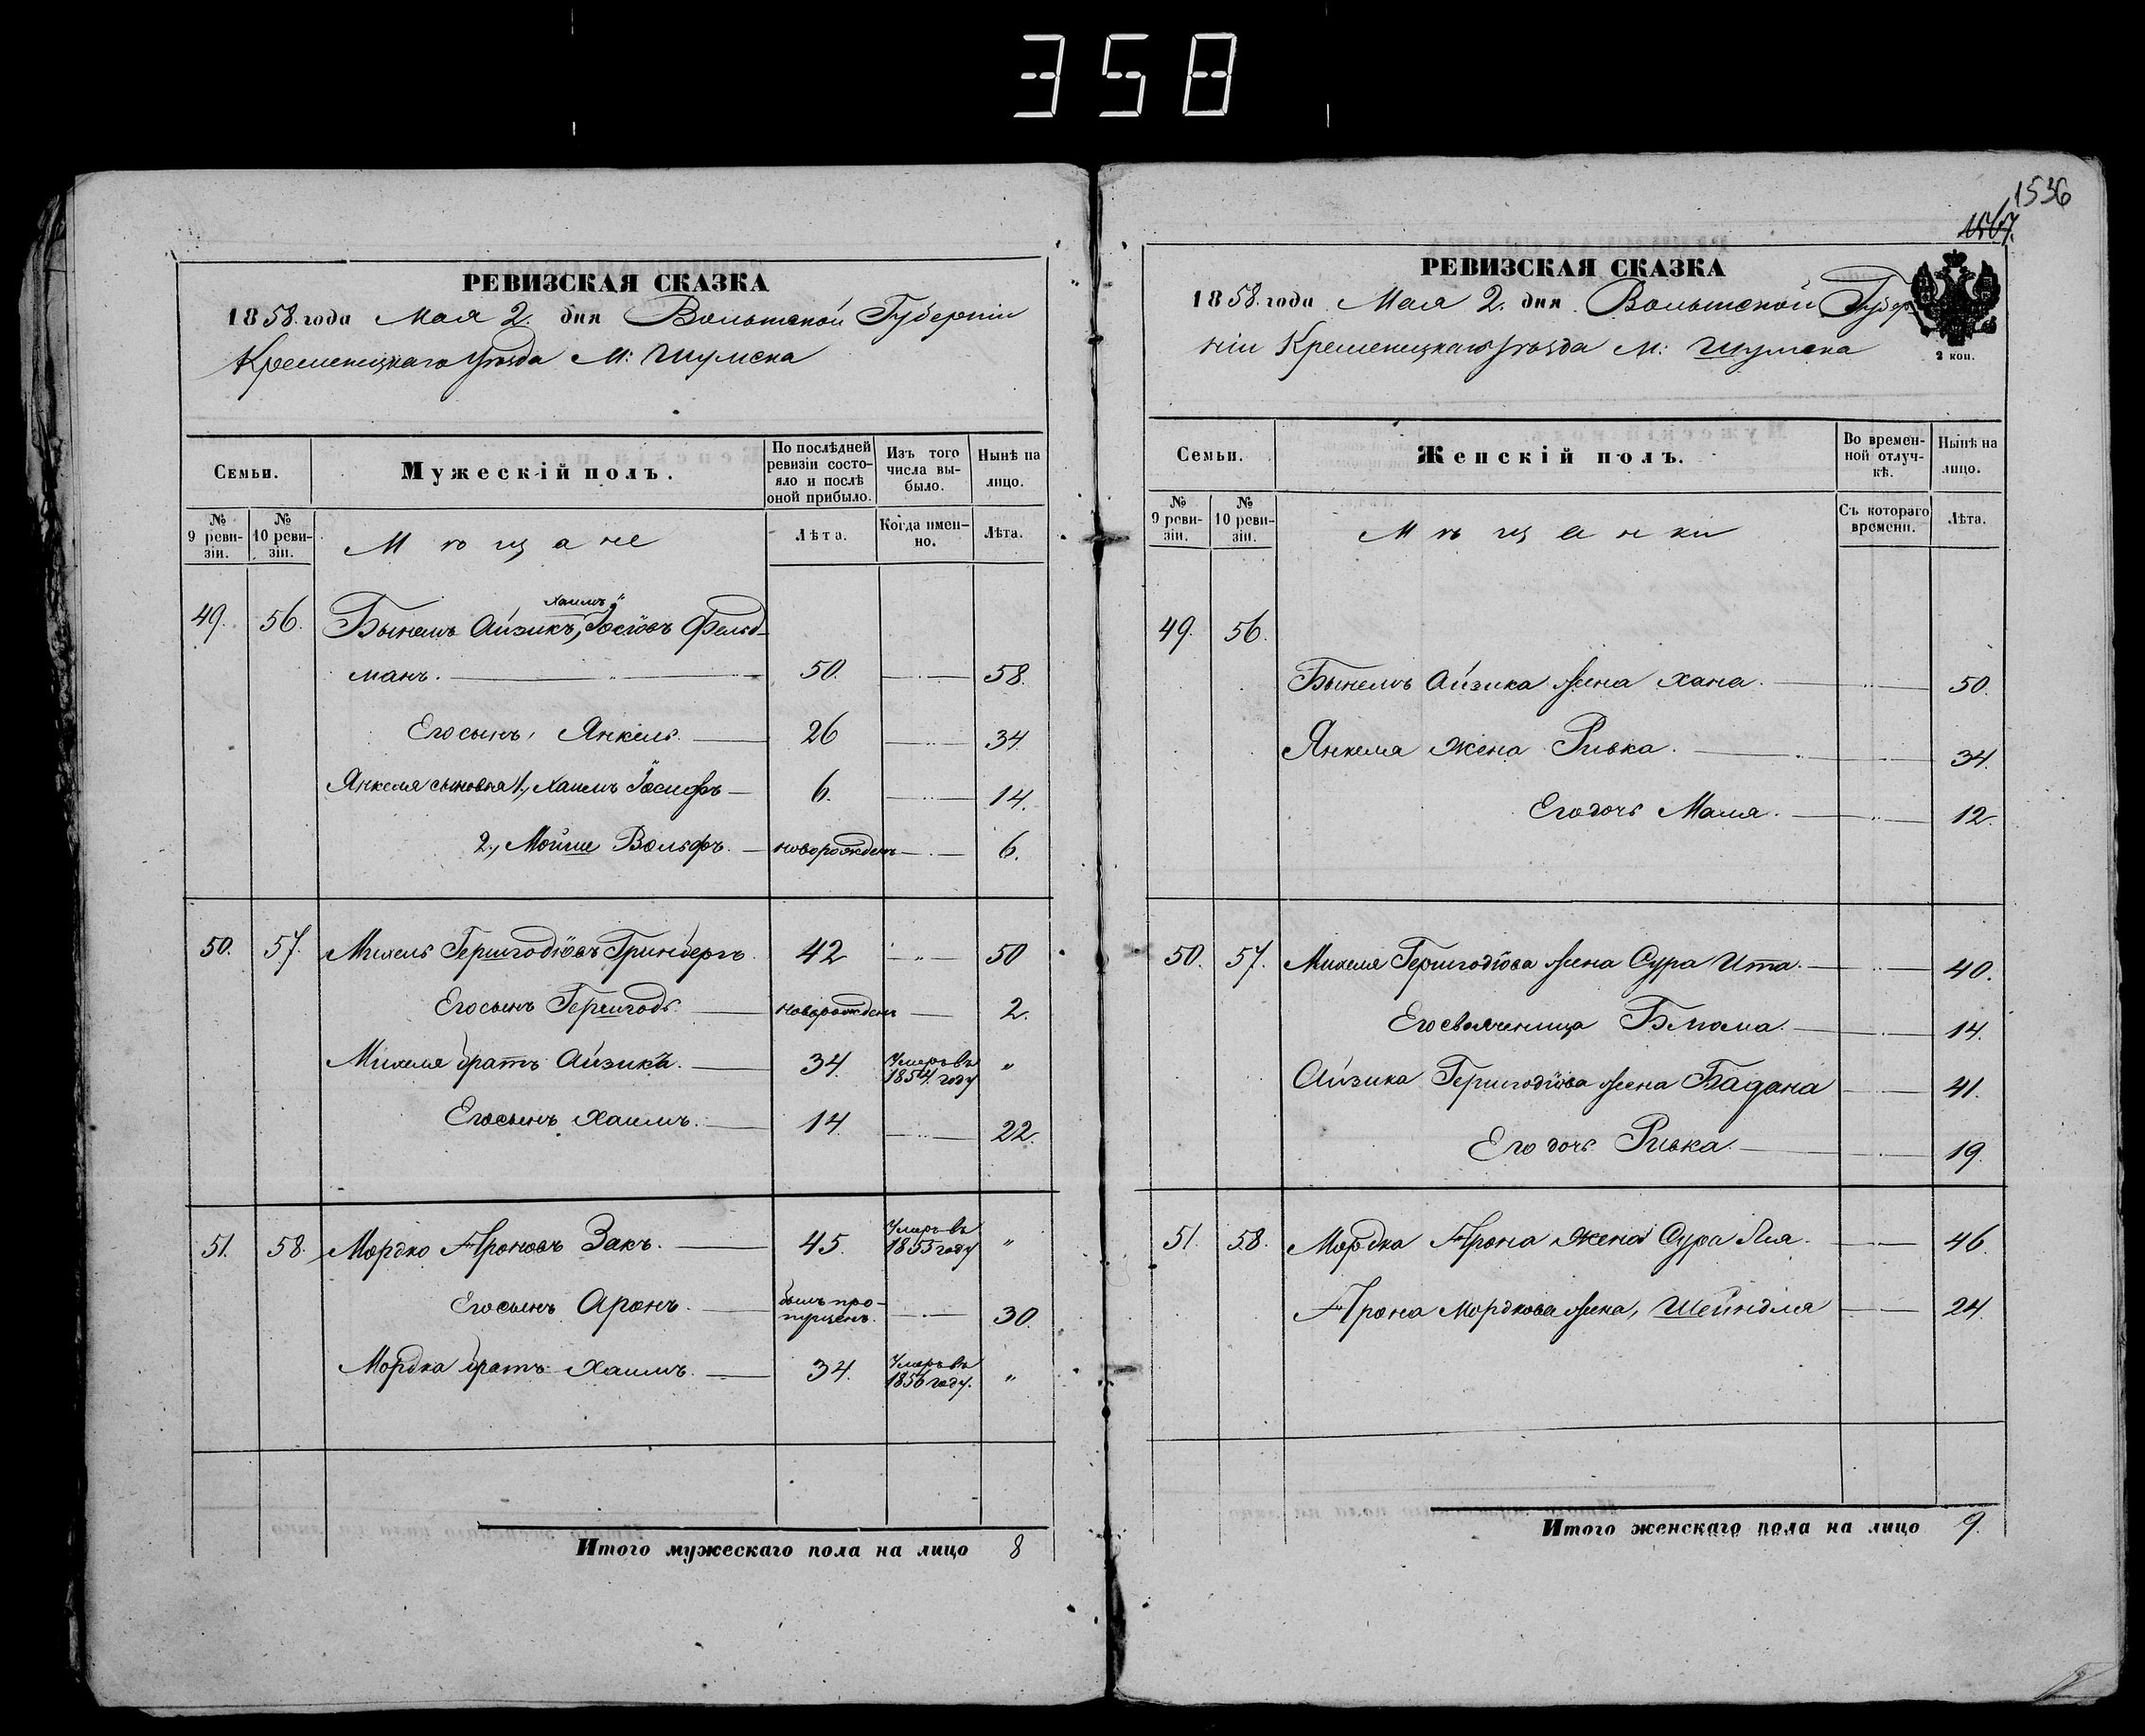 358
РЕВИЗСКАЯ СКАЗКА
1858. года Мая 2. дня Волынской Губерніи
Кременецкаго Уѣзда М: Шумска
Семьи.
Мужескій полъ.
По послѣдней ревизіи состояло и послѣ оной прибыло.
Изъ того числа выбыло.
Нынѣ на лицо.
№ 9 ревизіи.
№ 10 ревизіи.
Мѣщане
Лѣта.
Когда именно.
Лѣта.
Хаимъ
49. 56. Бынемъ Айзикъ, Іосіовъ Фельд-
манъ. 50. 58.
Его сынъ, Янкель. 26 34.
Янкеля сыновья 1., Хаимъ Іосифъ 6. 14.
2., Мойше Вольфъ. новорожденъ 6.
50. 57. Михель Гершгодіовъ Гринбергъ 42 " 50
Его сынъ Гершгодъ. новорожденъ 2.
Михеля братъ Айзикъ. 34. Умеръ въ 1854. году "
Его сынъ Хаимъ. 14. 22.
51. 58. Мордко Ароновъ Закъ. 45. Умеръ въ 1855 году "
Его сынъ Аронъ. былъ пропущенъ. 30.
Мордка братъ Хаимъ. 34. Умеръ въ 1856 году. "
Итого мужескаго пола на лицо 8
1536
РЕВИЗСКАЯ СКАЗКА
1858. года Мая 2. дня Волынской Губер
ніи Кременецкаго Уѣзда М: Шумска
2 коп.
Семьи.
Женскій полъ.
Во временной отлучкѣ.
Нынѣ на лицо.
№ 9 ревизіи.
№ 10 ревизіи.
Мѣщанки
Съ котораго времени.
Лѣта.
49. 56.
Бынемъ Айзика жена Хана. 50.
Янкеля жена Ривка. 34.
Его дочь Маля. 12.
50. 57. Михеля Гершгодіова жена Сура Ита. 40.
Его свояченица Блюма. 14.
Айзика Гершгодіова жена Бадана 41.
Его дочь Ривка. 19.
51. 58. Мордка Арона жена Сура Лея. 46.
Арона Мордкова жена, Шейндля 24.
Итого женскаго пола на лицо 9.